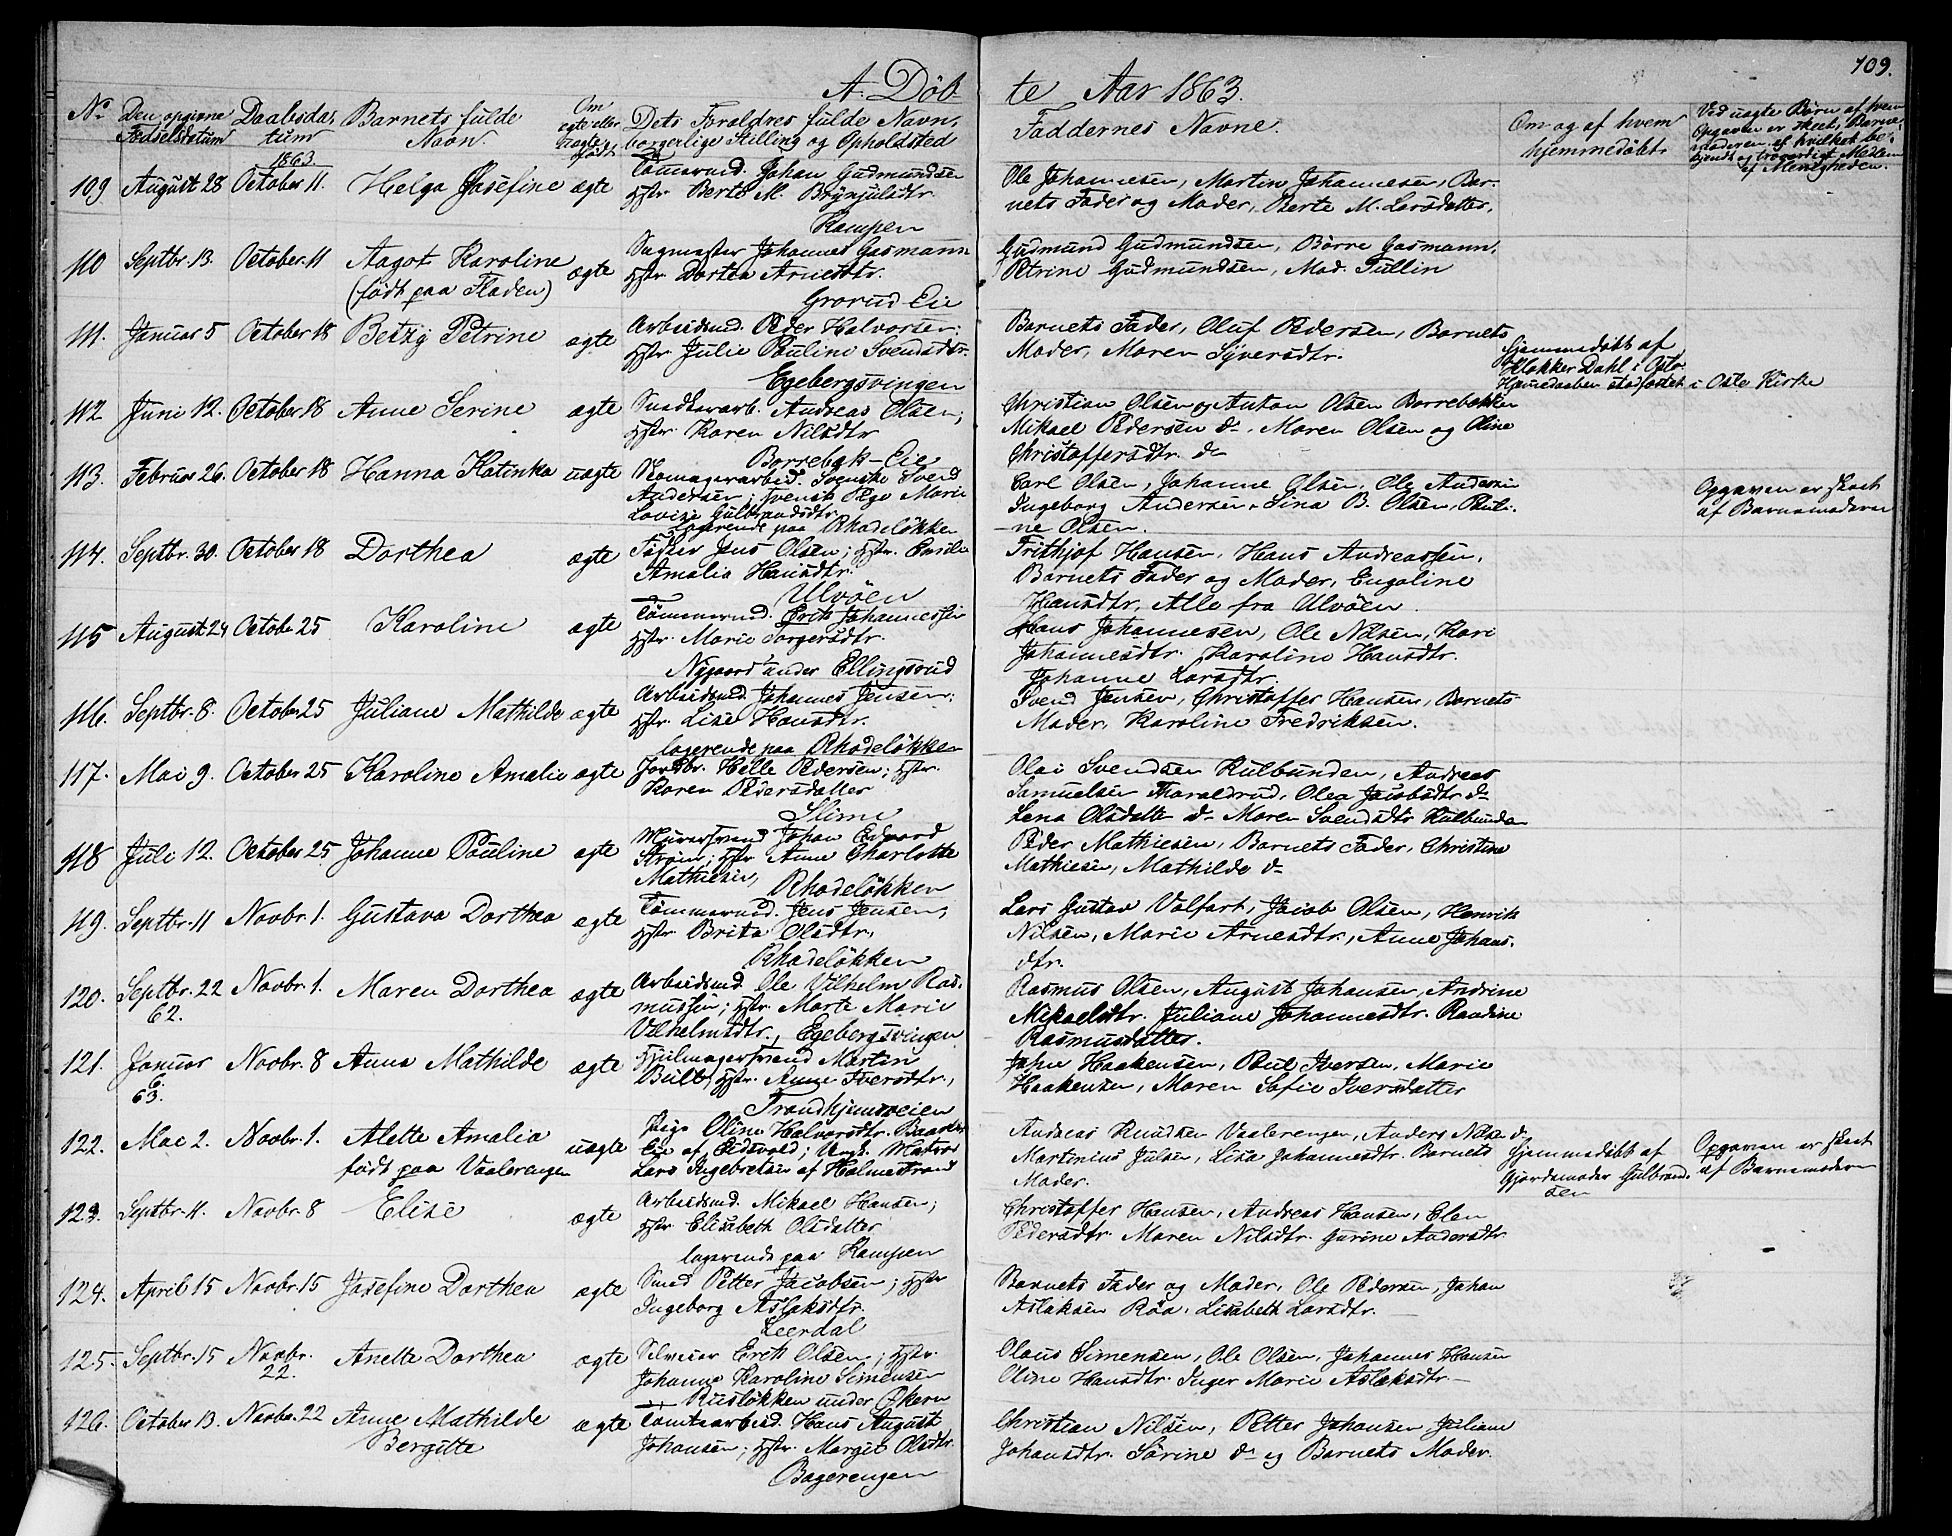 109.
A. Döb-
te Aar 1863.
No Den opgivne Fødselsdatum
Daabsdatum
Barnets fulde Navn.
Om egte eller uegte født
Dets Forældres fulde Navn, borgerlige Stilling og Opholdsted
Faddernes Navne.
Om og af hvem hjemmedøbt
Ved uægte Børn af hvem Opgaven er skeet, Barnemoderen
af Menigheden.
1863
109 August 28 October 11. Helga Josefine ægte
Tømmermd. Johan Gudmundsen
Hstr. Berte M. Brynjulsdtr.
Kampen
Ole Johannesen, Martin Johannesen, Bar-
nets Fader og Moder, Berte M. Larsdatter.
110 Septbr. 13. October. 11 Aagot Karoline
(født paa Fladen) ægte
Sagmester Johannes Gasmann
Hstr. Dortea Arnesdtr.
Grorud Eie
Gudmund Gudmundsen, Børre Gasmann,
Petrine Gudmundsen, Mad. Tullin
111. Januar 5 October 18 Betzy Petrine ægte
Arbeidsmd. Peder Halvorsen;
Hstr. Julie Pauline Svendsdtr.
Egebergsvingen
Barnets Fader, Oluf Pedersen, Barnets
Moder, Maren Syversdtr.
Hjemmedøbt af
Klokker Dahl i Oslo.
Hjemedaaben stadfæstet i Oslo Kirke
112 Juni 12. October 18 Anne Serine ægte
Snedkerarb. Andreas Olsen;
Hstr. Karen Nilsdtr
Borrebæk-Eie
Christian Olsen og Anton Olsen Borrebækken
Mikael Pedersen do. Maren Olsen og Oline
Christoffersdtr. do
113. Februar 26. October 18 Hanna Katinka uægte
Skomagerarbeid. Svenske Svend
Andersen; svensk Pige Marie
Lovise Gulbrandsdtr.
logerende paa Rhodeløkken
Carl Olsen, Johanne Olsen, Ole Andersen
Ingeborg Andersen, Sina B. Olsen, Pauli-
ne Olsen.
Opgaven er skeet
af Barnemoderen
114. Septbr. 30. October 18 Dorthea ægte
Fisker Jens Olsen; Hstr. Emilie
Amalia Hansdtr.
Ulvöen
Frithjof Hansen, Hans Andreassen,
Barnets Fader og Moder, Engeline
Hansdtr. Alle fra Ulvöen.
115 August 24 October 25 Karoline ægte
Tömmermd. Erik Johannessen
Hstr. Marie Torgersdtr.
Nygaard under Ellingsrud
Hans Johannesen, Ole Nilsen, Kari
Johannesdtr. Karoline Hansdtr.
Johanne Larsdtr.
116. Septbr. 8. October 25 Juliane Mathilde ægte
Arbeidsmd. Johannes Jensen;
Hstr. Lise Hansdtr.
logerende paa Rhodeløkken
Svend Jensen, Christoffer Hansen, Barnets
Moder, Karoline Fredriksen.
117. Mai 9. October 25 Karoline Amalie ægte
Jordbr. Helle Pedersen; Hstr.
Karen Pedersdatter
Slime
Olai Svendsen Kulbunden, Andreas
Samuelsen Thoraldrud, Olea Jacobsdtr do
Lena Olsdatter do Maren Svendsdtr Kulbunden
118 Juli 12. October 25 Johanne Pauline ægte
Murersvend Johan Edvard
Strøm; Hstr Anne Charlotte
Mathiesen, Rhodeløkken
Peder Mathiesen, Barnets Fader, Christine
Mathiesen, Mathilde do
119. Septbr. 11 Novbr. 1. Gustava Dorthea ægte
Tømmermd. Jens Jensen,
Hstr. Brita Olsdtr,
Rhodeløkken
Lars Gustav Valfart, Jacob Olsen, Henrik
Nilsen, Marie Arnesdtr., Anne Johans-
dtr.
120. Septbr. 22
62. Novbr. 1. Maren Dorthea ægte
Arbeidsmd Ole Vilhelm Ras-
mussen; Hstr. Marte Marie
Vilhelmsdtr., Egebergsvingen
Rasmus Olsen, August Johansen, Andrine
Mikaelsdtr. Juliane Johannesdtr. Randine
Rasmusdatter.
121. Januar
6.
63. Novbr. 8 Anna Mathilde ægte
Hjulmagersvend Martin
Bull, Hstr. Anne Iversdtr.,
Trondhjemsveien
John Haakensen, Paul Iversen, Marie
Haakensen, Maren Sofie Iversdatter
122. Mai 2. Novbr. 1. Alette Amalia
født paa Vaalerengen uægte
Pige Oline Halvorsdtr. Baarder
Eie af Eidsvold; Ungk. Matros
Lars Ingebretsen af Holmestrand
Andreas Knudsen Vaalerengen, Anders Nilsen do
Martinius Julsen, Lisa Johannesdtr. Barnets
Moder.
Hjemmedøbt af
Gjordemoder Gulbrand-
sen
Opgaven er skeet
af Barnemoderen
123. Septbr. 11. Novbr. 8 Elise ægte
Arbeidsmd. Mikael Hansen;
Hstr Elisabeth Olsdatter
logerende paa Kampen
Christoffer Hansen, Andreas Hansen, Elen
Pedersdtr. Maren Nilsdtr. Gurine Andersdtr
124. April 15 Novbr. 15 Josefine Dorthea ægte
Smed Petter Jacobsen; Hstr
Ingeborg Aslaksdtr.
Leerdal
Barnets Fader og Moder, Ole Pedersen, Johan
Aslaksen Röa, Lisabeth Larsdtr.
125. Septbr. 15 Novbr.
22. Anette Dorthea ægte
Selveier Erik Olsen; Hstr.
Johanne Karoline Simensen
Rusløkken under Økern
Olaus Simensen, Ole Olsen, Johannes Hansen
Oline Hansdtr. Inger Marie Aslaksdtr.
126. October 13. Novbr. 22 Anne Mathilde
Bergitte ægte
Tomtearbeid. Hans August
Johansen; Hstr. Margit Olsdtr.
Bagerengen
Christian Nilsen, Petter Johansen Juliane
Johansdtr. Sörine do og Barnets Moder.